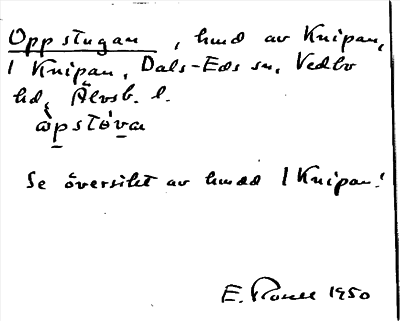 Oppstugan, hmd av Knipan,
1 Knipan, Dals-Eds sn, Vedbo
hd, Älvsb. l.
Se översikt av hmdd 1 Knipan!
E. 1950